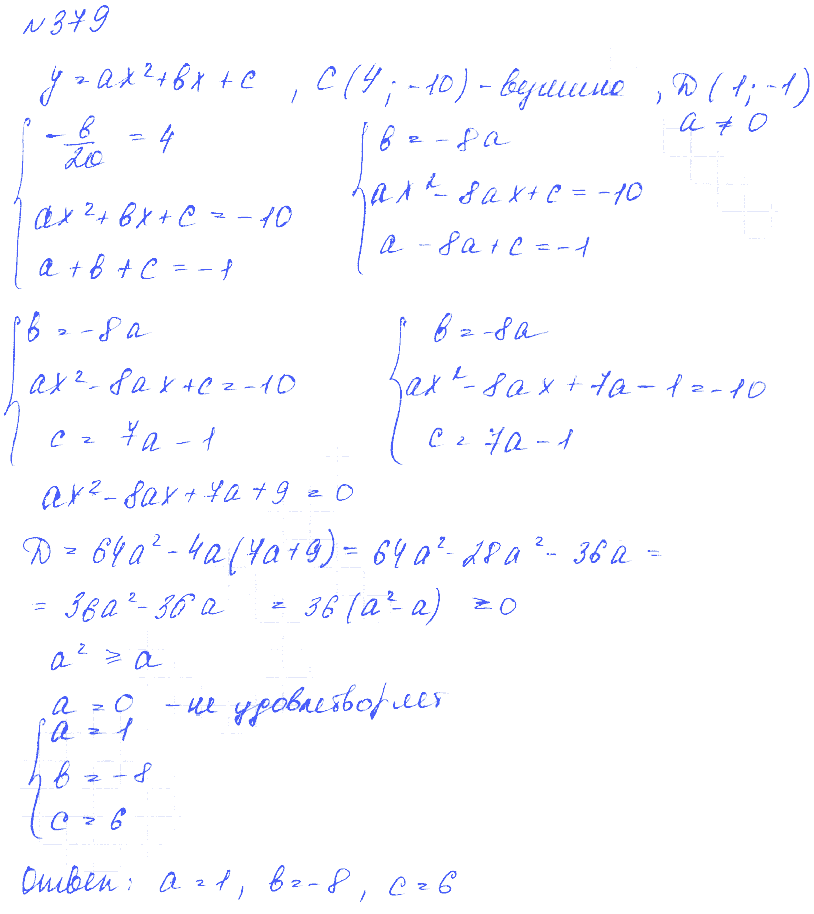 №379
y = ax² + bx + c , C(4; -10) - вершина , D(1; -1)
a ≠ 0
{ -b/2a = 4
ax² + bx + c = -10
a + b + c = -1
{ b = -8a
ax² - 8ax + c = -10
a - 8a + c = -1
{ b = -8a
ax² - 8ax + c = -10
c = 7a - 1
{ b = -8a
ax² - 8ax + 7a - 1 = -10
c = 7a - 1
ax² - 8ax + 7a + 9 = 0
D = 64a² - 4a(7a + 9) = 64a² - 28a² - 36a =
= 36a² - 36a = 36(a² - a) = 0
a² ≥ a
a = 0 - не удовлетворяет
{ a = 1
b = -8
c = 6
Ответ: a = 1, b = -8, c = 6